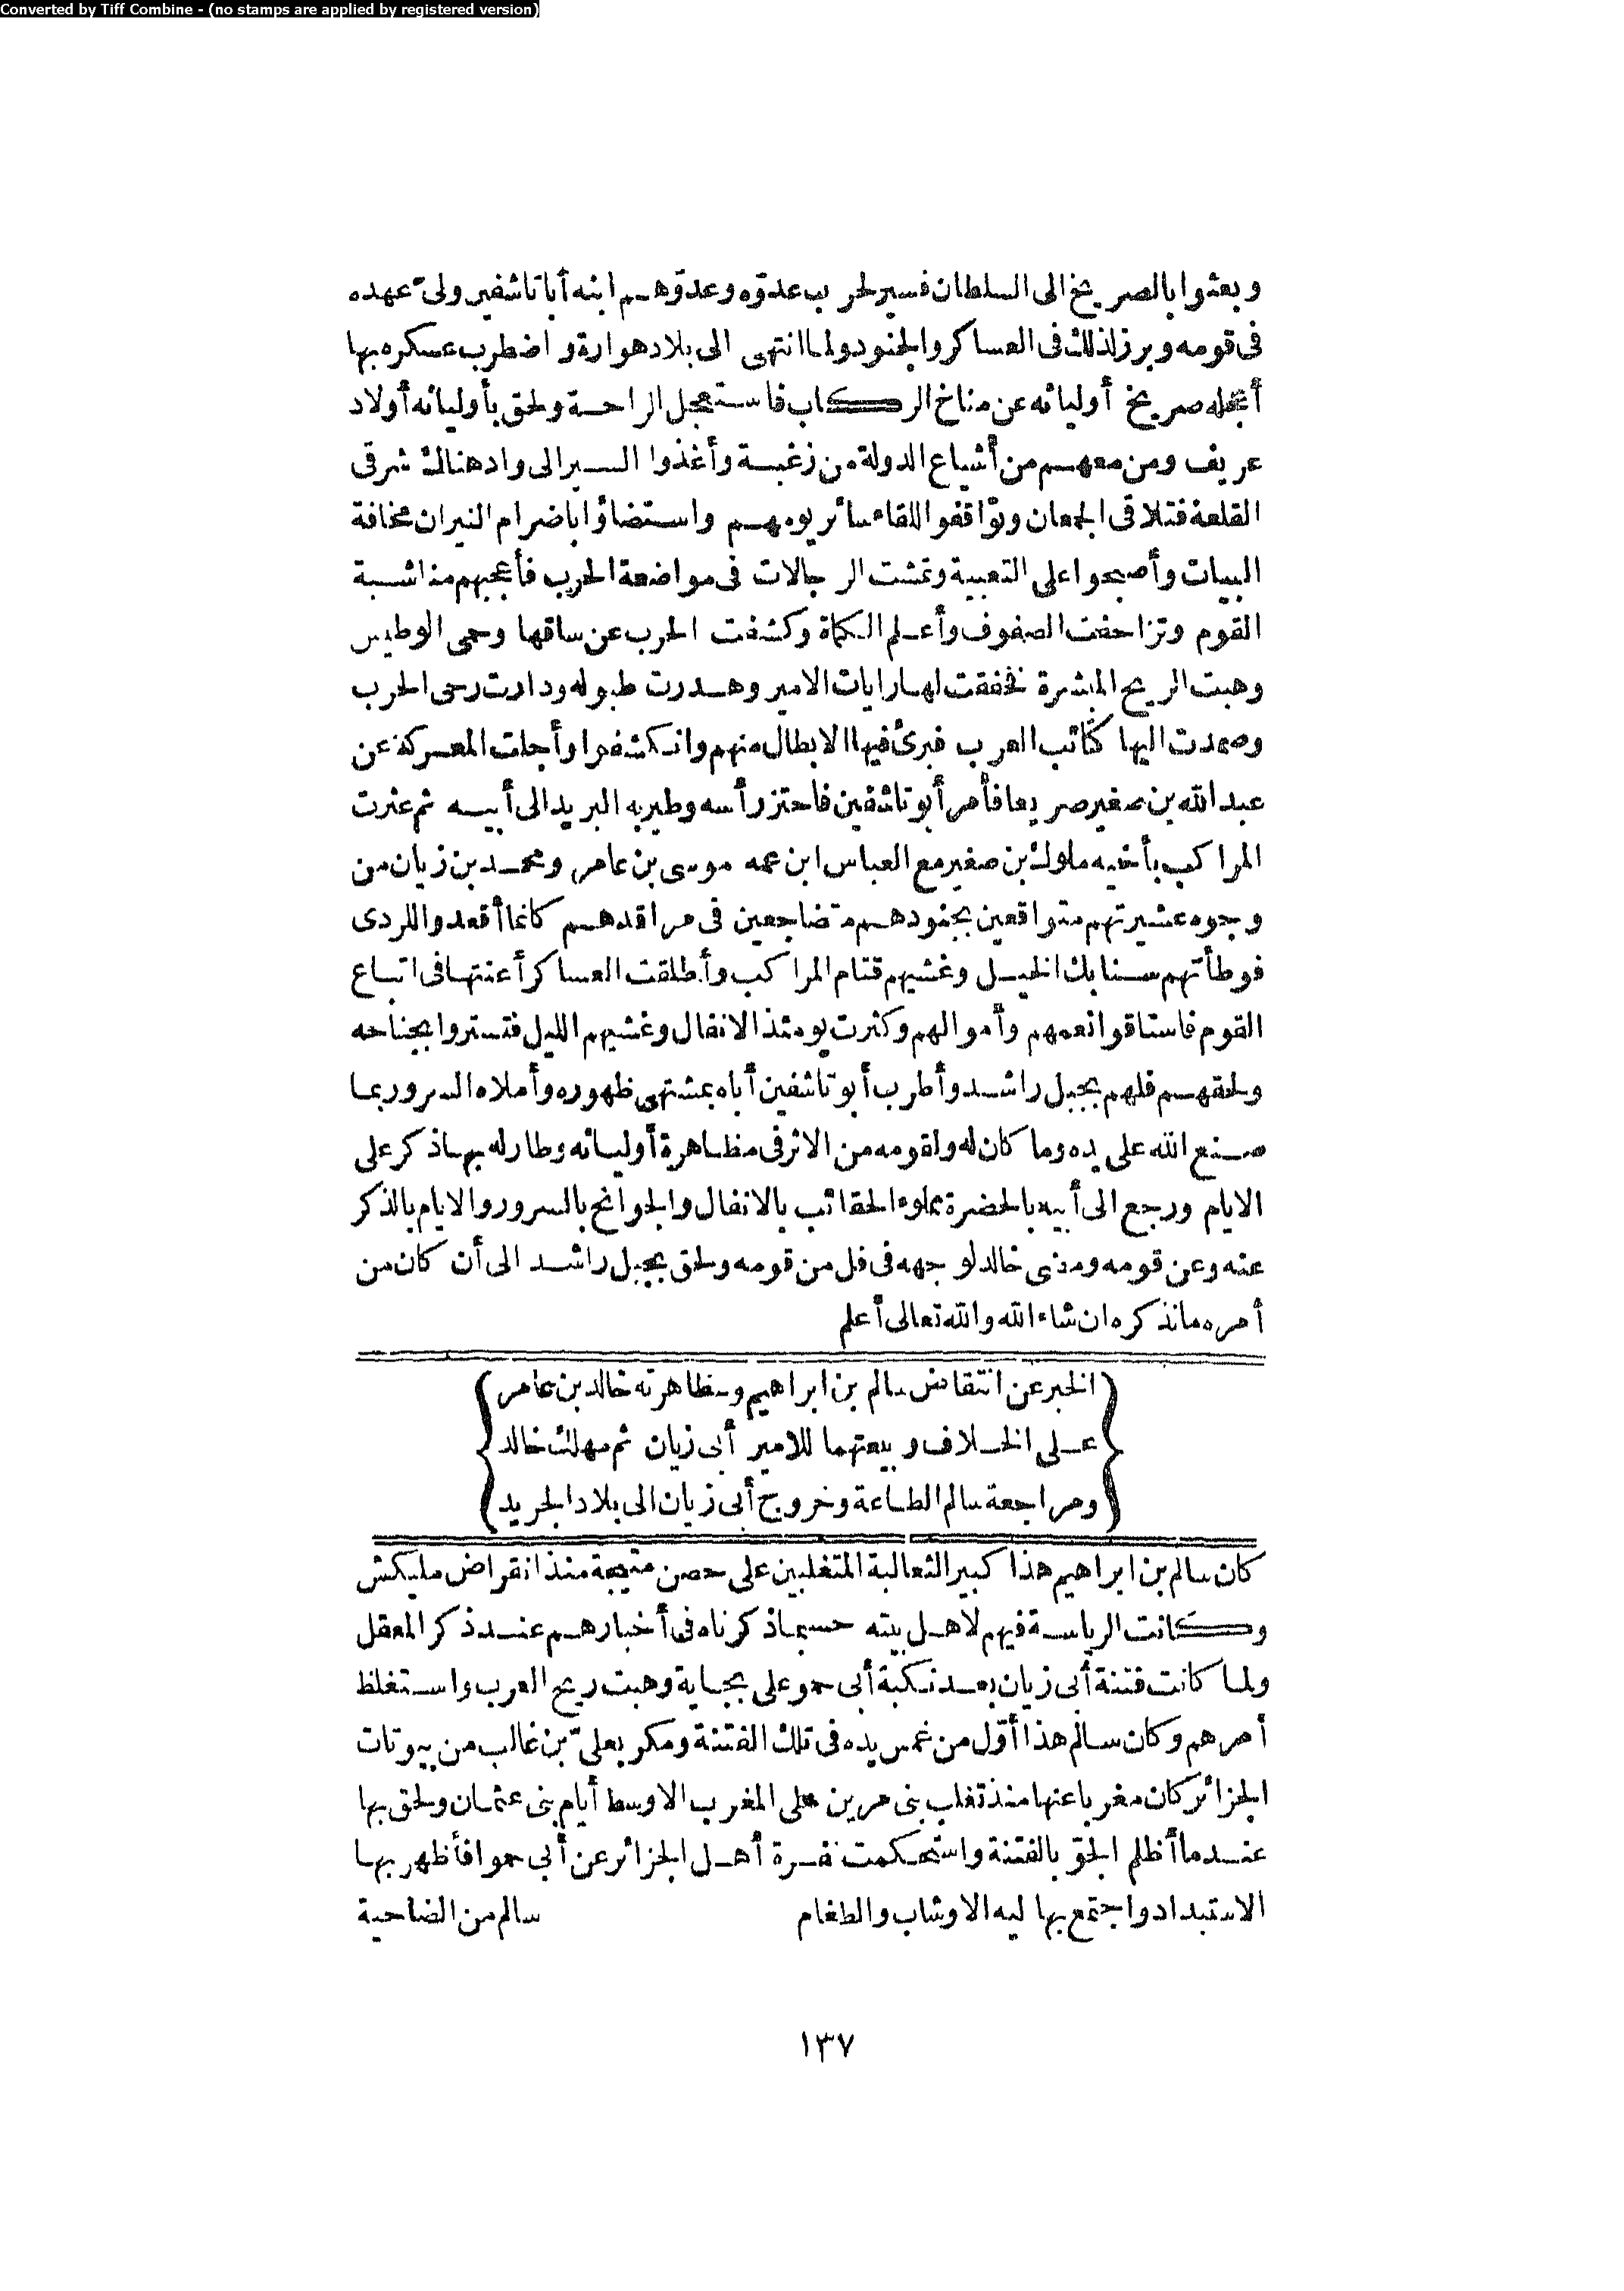 Converted by Tiff Combine - (no stamps are applied by registered version)
وبعثوا بالصريخ الى السلطان فسير لحرب عدوّه وعدوّهم ابنه أبا تاشفين ولىّ عهده
فى قومه وبرز لذلك فى العساكر والجنود ولما انتهى الى بلاد هوارة واضطرب عسكره بها
أعجله صريخ أوليائه عن مناخ الركاب فاستعجل الراحة ولحق بأوليائه أولاد
عريف ومن معهم من أشياع الدولة من زغبة وأغذوا السير الى واد هناك شرقى
القلعة فتلاقى الجمعان وتواقفوا اللقاء سائر يومهم واستضاؤا باضرام النيران مخافة
البيات وأصبحوا على التعبية وتمشت الرجالات فى مواضعة الحرب فأعجبهم مناشبة
القوم وتزاحفت الصفوف وأعلم الكماة وكشفت الحرب عن ساقها وحمى الوطيس
وهبت الريح المبشرة فخفقت لها رايات الامير وهدرت طبوله ودارت رحى الحرب
وصمدت اليها كتائب العرب فبرئ فيها الابطال منهم وانكشفوا وأجلت المعركة عن
عبد الله بن صغير صريعا فأمر أبو تاشفين فاحتز رأسه وطير به البريد الى أبيه ثم عثرت
المراكب بأخيه ملوك بن صغير مع العباس ابن عمه موسى بن عامر ومحمد بن زيان من
وجوه عشيرتهم متواقعين بجنودهم متضاجعين فى مراقدهم كانما أقعدوا للردى
فوطأتهم سنابك الخيل وغشيهم قتام المراكب وأطلقت العساكر أعنتها فى اتباع
القوم فاستاقوا نعمهم وأموالهم وكثرت يومئذ الانفال وغشيهم الليل فتستروا بجناحه
ولحقهم فلهم بجبل راشد وأطرب أبو تاشفين أباه بمشتهى ظهوره وأملاه السرور بما
صنع الله على يده وما كان له ولقومه من الاثر فى مظاهرة أوليائه وطار له بها ذكر على
الايام ورجع الى أبيه بالحضرة مملوء الحقائب بالانفال والجوانح بالسرور والايام بالذكر
عنه وعن قومه ومضى خالد لوجهه فى فل من قومه ولحق بجبل راشد الى أن كان من
أمره ما نذكره ان شاء الله والله تعالى أعلم
الخبر عن انتقاض سالم بن ابراهيم ومظاهرته خالد بن عامر
على الخلاف وبيعتهما للامير أبى زيان ثم مهلك خالد
ومراجعة سالم الطاعة وخروج أبى زيان الى بلاد الجريد
كان سالم بن ابراهيم هذا كبير الثعالبة المتغلبين على حصن متيجة منذ انقراض مليكش
وكانت الرياسة فيهم لاهل بيته حسبما ذكرناه فى أخبارهم عند ذكر المعقل
ولما كانت فتنة أبى زيان بعد نكبة أبى حمو على بجاية وهبت ريح العرب واستغلظ
أمرهم وكان سالم هذا أوّل من غمس يده فى تلك الفتنة ومكر بعلىّ بن غالب من بيوتات
الجزائر كان مغربا عنها منذ تغلب بنى مرين على المغرب الاوسط أيام بنى عثمان ولحق بها
عندما أظلم الجوّ بالفتنة واستحكمت نفرة أهل الجزائر عن أبى حمو افأظهر بها
الاستبداد واجتمع بها ليه الاوشاب والطغام سالم من الضاحية
١٣٧